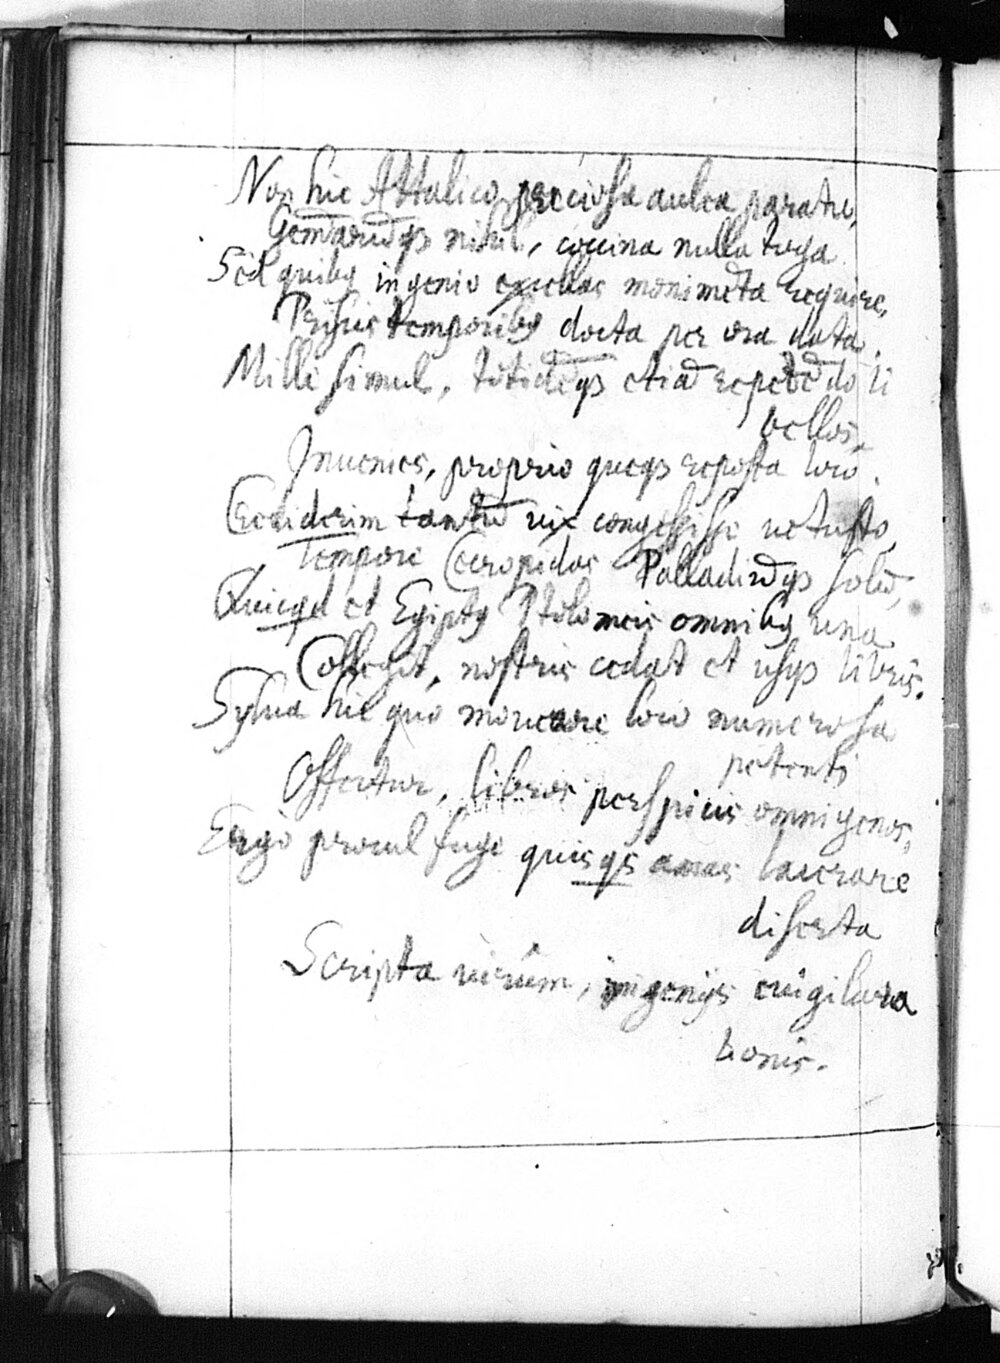 Non hic Attalico preciosa aulea paratu,
Gem̄arūqȝ nihil, coccina nulla toga.
Sed quibꝯ ingenio excellas monimēta require,
Priscis temporibꝯ docta per ora data.
Mille simul, totidēqȝ etiā repetēdo li
bellos,
Inuenies, proprio queqȝ reposta loco.
Crediderim tantū vix congessisse vetusto
Tempore Cecropidas Palladiūqȝ solū,
Quicqd et Egiptꝯ Ptolomeis omnibꝯ una
Collegit, nostris cedat et usqȝ libris.
Sylua hic quo moueare loco numerosa
petenti
Offertur, libros perspicis omnigenos,
Ergo procul fuge quisqȝ amas lacerare
diserta
Scripta virûm, ingenijs euigilata
bonis.